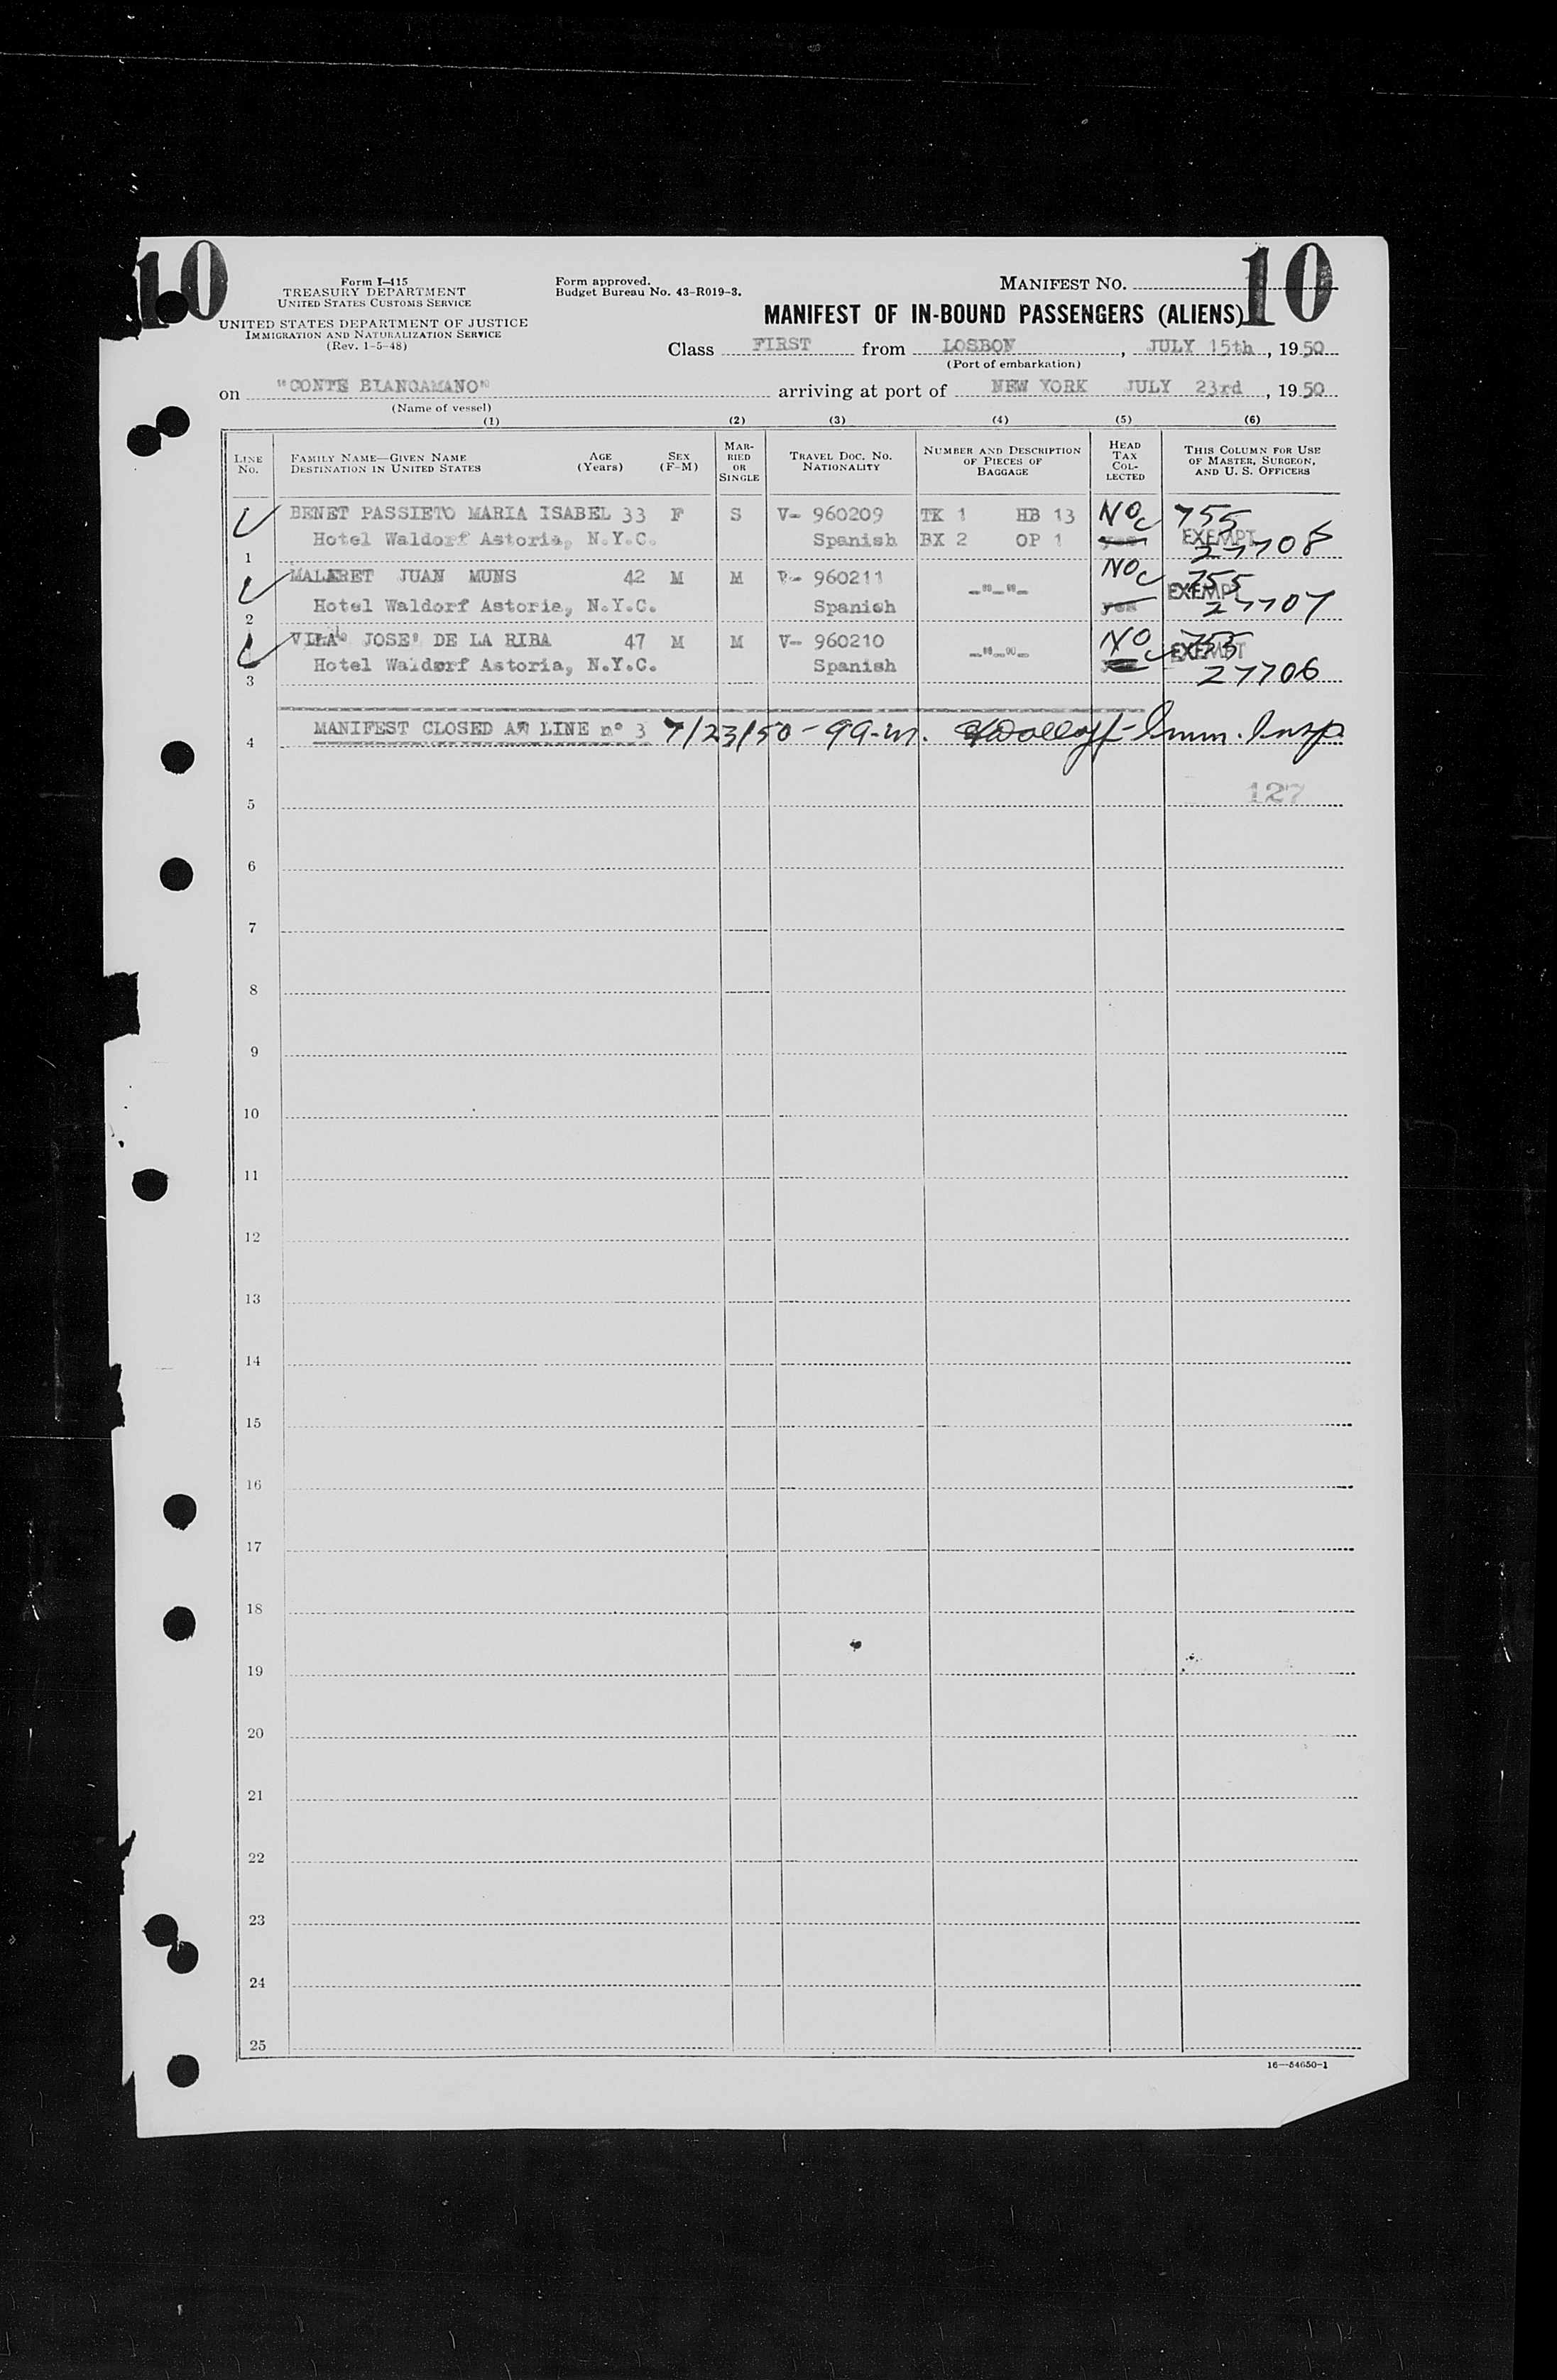 10
10
Form I-415
TREASURY DEPARTMENT
UNITED STATES CUSTOMS SERVICE
UNITED STATES DEPARTMENT OF JUSTICE
IMMIGRATION AND NATURALIZATION SERVICE
(Rev. 1-5-48)
Form approved.
Budget Bureau No. 43-R019-3.
MANIFEST NO.
MANIFEST OF IN-BOUND PASSENGERS (ALIENS)
Class FIRST from LOSBON, JULY 15th, 1950
(Port of embarkation)
on "CONTE BIANCAMANO" arriving at port of NEW YORK JULY 23rd, 1950
(Name of vessel)
(1) (2) (3) (4) (5) (6)
LINE No.
FAMILY NAME—GIVEN NAME
DESTINATION IN UNITED STATES
AGE (Years)
SEX (F-M)
MARRIED OR SINGLE
TRAVEL DOC. NO.
NATIONALITY
NUMBER AND DESCRIPTION OF PIECES OF BAGGAGE
HEAD TAX COLLECTED
THIS COLUMN FOR USE OF MASTER, SURGEON, AND U. S. OFFICERS
BENET PASSIETO MARIA ISABEL 33 F S V- 960209 TK 1 HB 13 NO 755
1 Hotel Waldorf Astoria, N.Y.C. Spanish BX 2 OP 1 yes EXEMPT 27708
MALERET JUAN MUNS 42 M M V- 960211 -"-"- NO 755
2 Hotel Waldorf Astoria, N.Y.C. Spanish yes EXEMPT 27707
VILA JOSE' DE LA RIBA 47 M M V- 960210 -"-"- NO 755
3 Hotel Waldorf Astoria, N.Y.C. Spanish EXEMPT 27706
4 MANIFEST CLOSED AT LINE n° 3 7/23/50 - 9 A.M. Imm. Insp.
127
5
6
7
8
9
10
11
12
13
14
15
16
17
18
19
20
21
22
23
24
25
16—54650-1